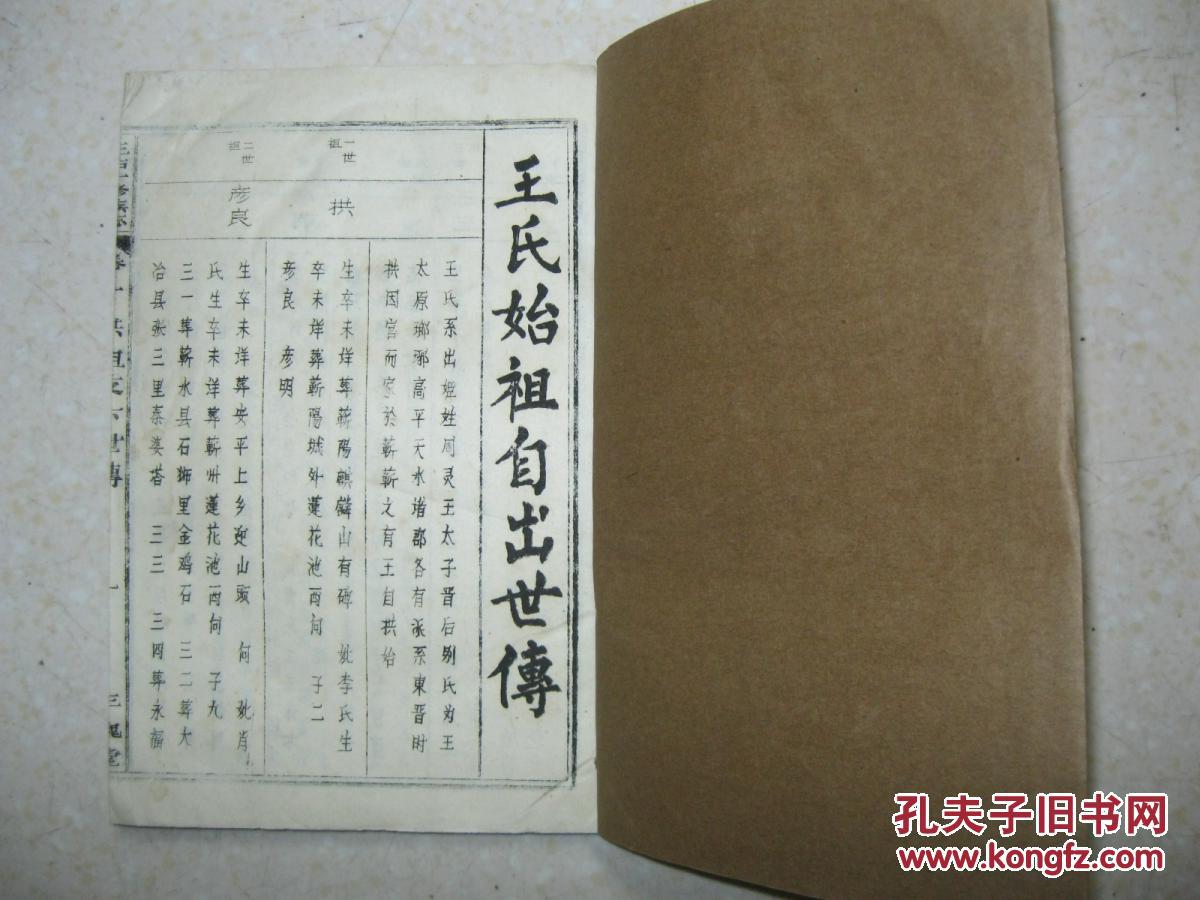 王氏始祖自出世傳
一世祖
拱
王氏系出姬姓周灵王太子晋后别氏为王
太原琊琊高平天水诸郡各有派系東晋时
拱因官而家於蕲蕲之有王自拱始
生卒未详葬蕲陽麒麟山有碑 妣李氏生
卒未详葬蕲陽城外蓮花池酉向 子二
彦良 彦明
二世祖
彦良
生卒未详葬安平上乡迎山 向 妣肖
氏生卒未详葬蕲州蓮花池酉向 子九
三一葬蕲水县石狮里金鸡石 三二葬大
冶县张三里泰婆荅 三三 三四葬永福
卷一
世傳
一
三槐堂
孔夫子旧书网
www.kongfz.com